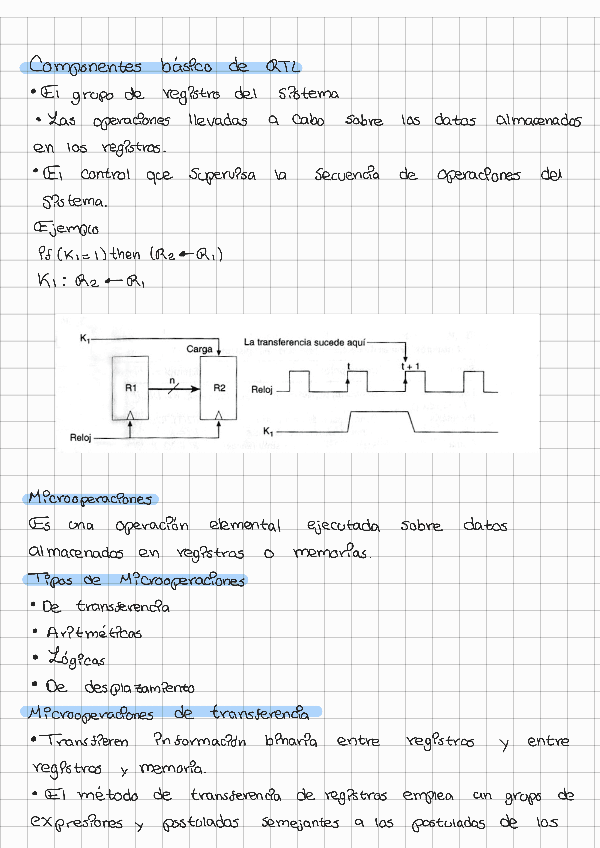 Componentes básico de RTL
• El grupo de registro del sistema
• Las operaciones llevadas a cabo sobre los datos almacenados
en los registros.
• El control que supervisa la secuencia de operaciones del
sistema.
Ejemplo
if (K1=1) then (R2 ← R1)
K1: R2 ← R1
K1
Carga
R1
n
R2
Reloj
La transferencia sucede aquí
t
t + 1
Reloj
K1
Microoperaciones
Es una operación elemental ejecutada sobre datos
almacenados en registros o memorias.
Tipos de Microoperaciones
• De transferencia
• Aritméticas
• Lógicas
• De desplazamiento
Microoperaciones de transferencia
• Transfieren información binaria entre registros y entre
registros y memoria.
• El método de transferencia de registros emplea un grupo de
expresiones y postulados semejantes a los postulados de los